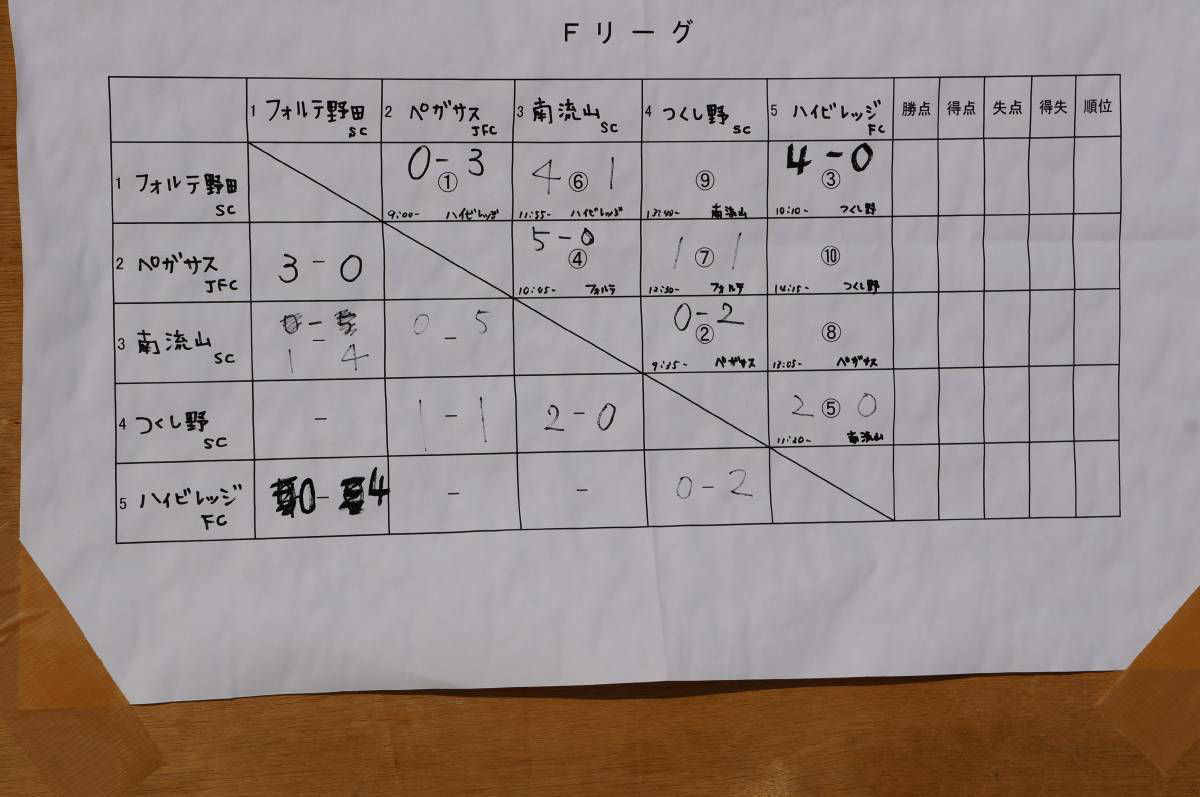 Fリーグ
1 フォルテ野田 SC 2 ペガサス JFC 3 南流山 SC 4 つくし野 SC 5 ハイビレッジ FC 勝点 得点 失点 得失 順位
1 フォルテ野田 SC
0-3 ① 9:00- ハイビレッジ
4 ⑥ 1 11:55- ハイビレッジ
⑨ 13:40- 南流山
4-0 ③ 10:10- つくし野
2 ペガサス JFC
3-0
5-0 ④ 10:45- フォルテ
1 ⑦ 1 12:30- フォルテ
⑩ 14:15- つくし野
3 南流山 SC
- 1 4
0-5
0-2 ② 9:35- ペガサス
⑧ 13:05- ペガサス
4 つくし野 SC
-
1-1
2-0
2 ⑤ 0 11:20- 南流山
5 ハイビレッジ FC
0-4
-
-
0-2